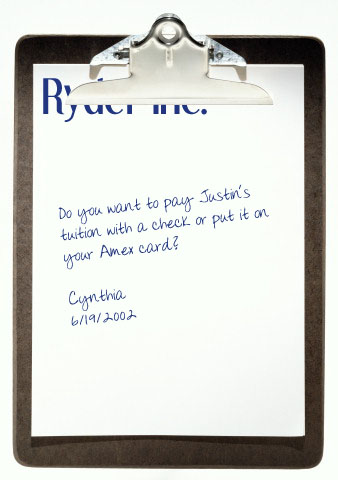 Ryder Inc.
Do you want to pay Justin's
tuition with a check or put it on
your Amex card?
Cynthia
6/19/2002